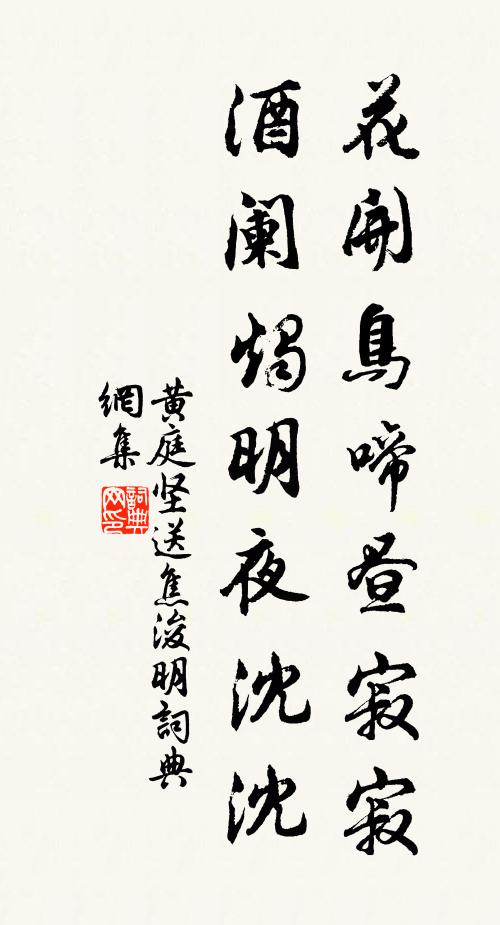 花開鳥啼昼寂寂
酒阑燭明夜沈沈
黄庭坚送焦浚明詞典
網集
詞典
网印